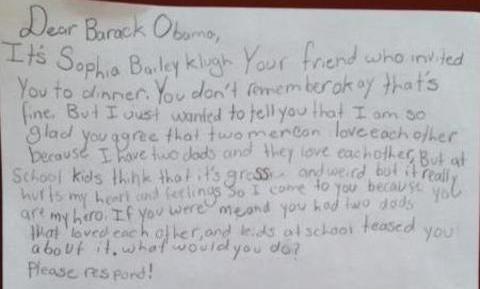 Dear Barack Obama,
It's Sophia Bailey klugh Your friend who invited
You to dinner. You don't remember okay that's
fine. But I Just wanted to tell you that I am so
glad you agree that two men can love each other
because I have two dads and they love each other, But at
School kids think that it's gross and weird but it really
hurts my heart and feelings So I come to you because you
are my hero. If you were me and you had two dads
that loved each other, and kids at school teased you
about it, what would you do?
Please respond!